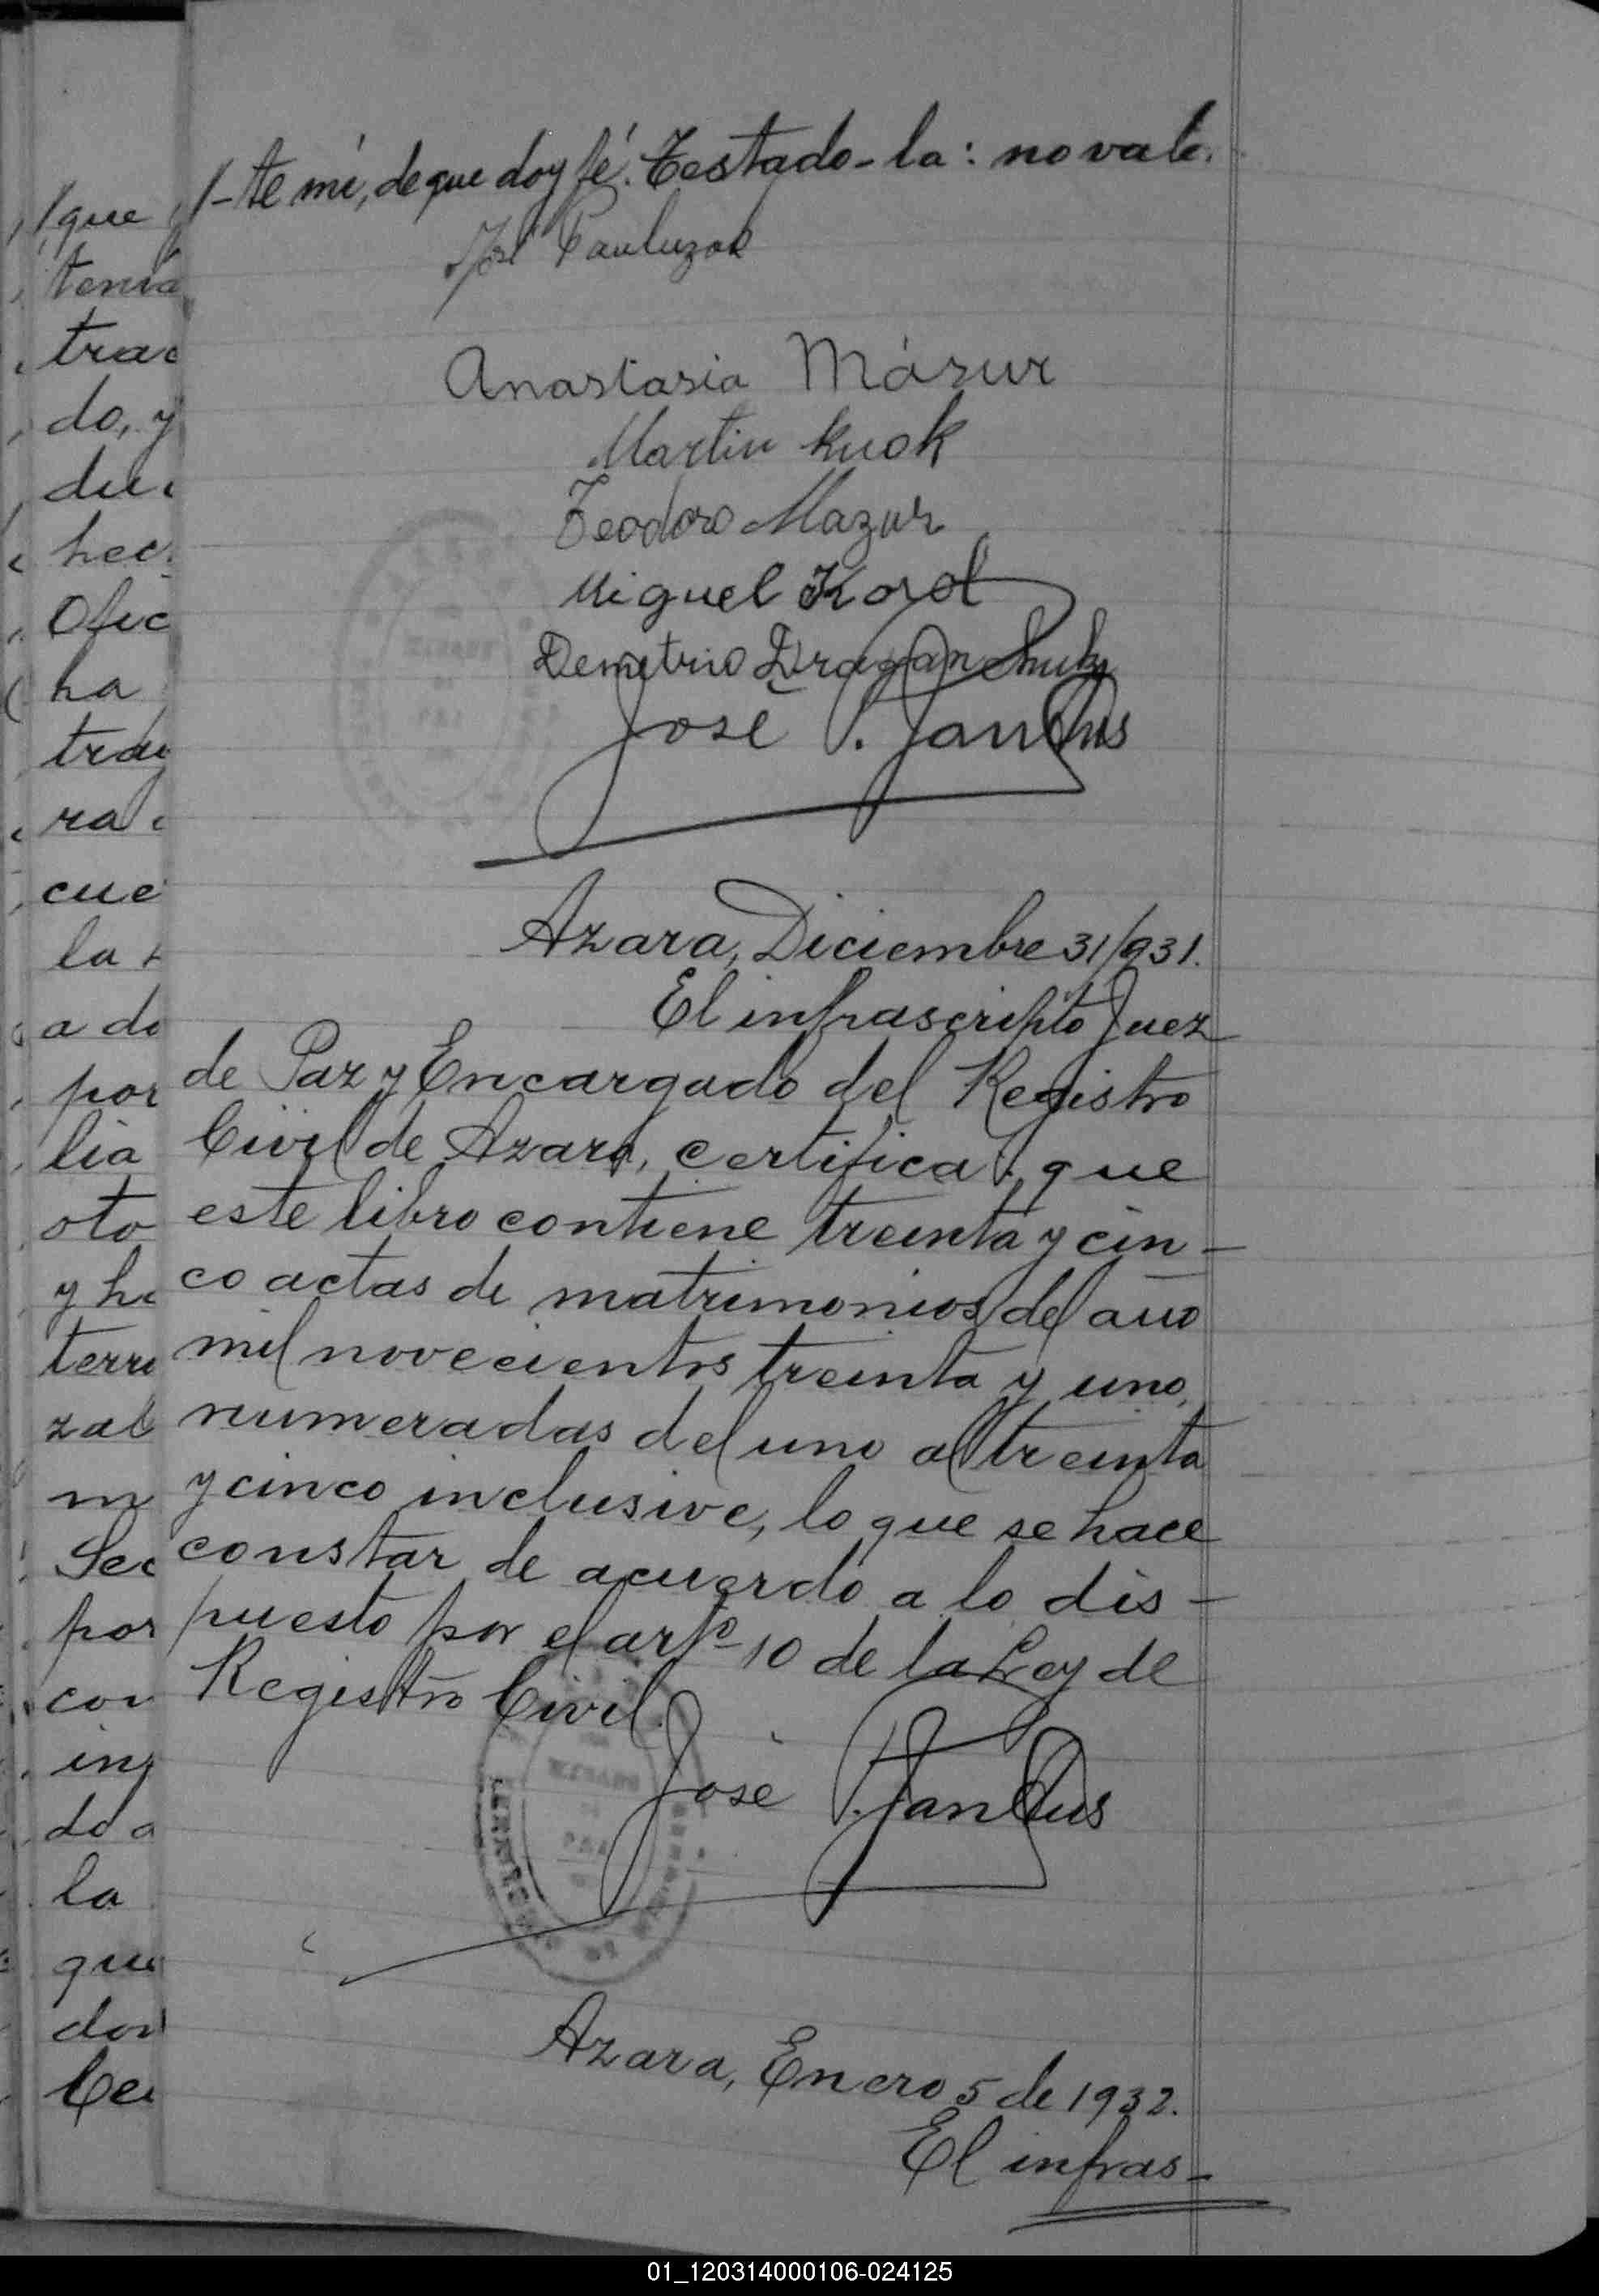 /-te mí, de que doy fé. Testado-la: no vale.
José Pauluzak
Anastasia Mázur
Martin Kuok
Teodoro Mazur
Miguel Korol
Demetrio Draganchuk
José P.
Azara, Diciembre 31/931.
El infrascripto Juez
de Paz y Encargado del Registro
Civil de Azara, certifica: que
este libro contiene treinta y cin-
co actas de matrimonios del año
mil novecientos treinta y uno,
numeradas del uno al treinta
y cinco inclusive, lo que se hace
constar de acuerdo a lo dis-
puesto por el artº 10 de la Ley de
Registro Civil.
José P.
Azara, Enero 5 de 1932.
El infras-
/que
tenía
trac
do, y
du
hec
Ofic
ha
tray
ra
cue
la
a do
por
lia
oto
y ha
terri
zal
m
Sec
por
con
ing
do a
la
que
don
Cer
01_120314000106-024125